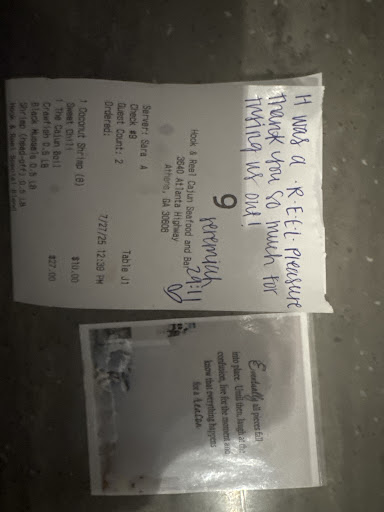 It was a R·E·E·L· Pleasure
thank you so much for
trying us out!
9
Jeremiah
29:11
Hook & Reel Cajun Seafood and Bar
3640 Atlanta Highway
Athens, GA 30606
Server: Sara A
Check #9
Table J1
Guest Count: 2
Ordered:
7/27/25 12:39 PM
1 Coconut Shrimp (8)
$10.00
Sweet Chili
1 The Cajun Boil
$27.00
Crawfish 0.5 LB
Black Mussels 0.5 LB
Shrimp (head-off) 0.5 LB
Eventually all pieces fall
into place. Until then, laugh at the
confusion, live for the moment and
know that everything happens
for a reason